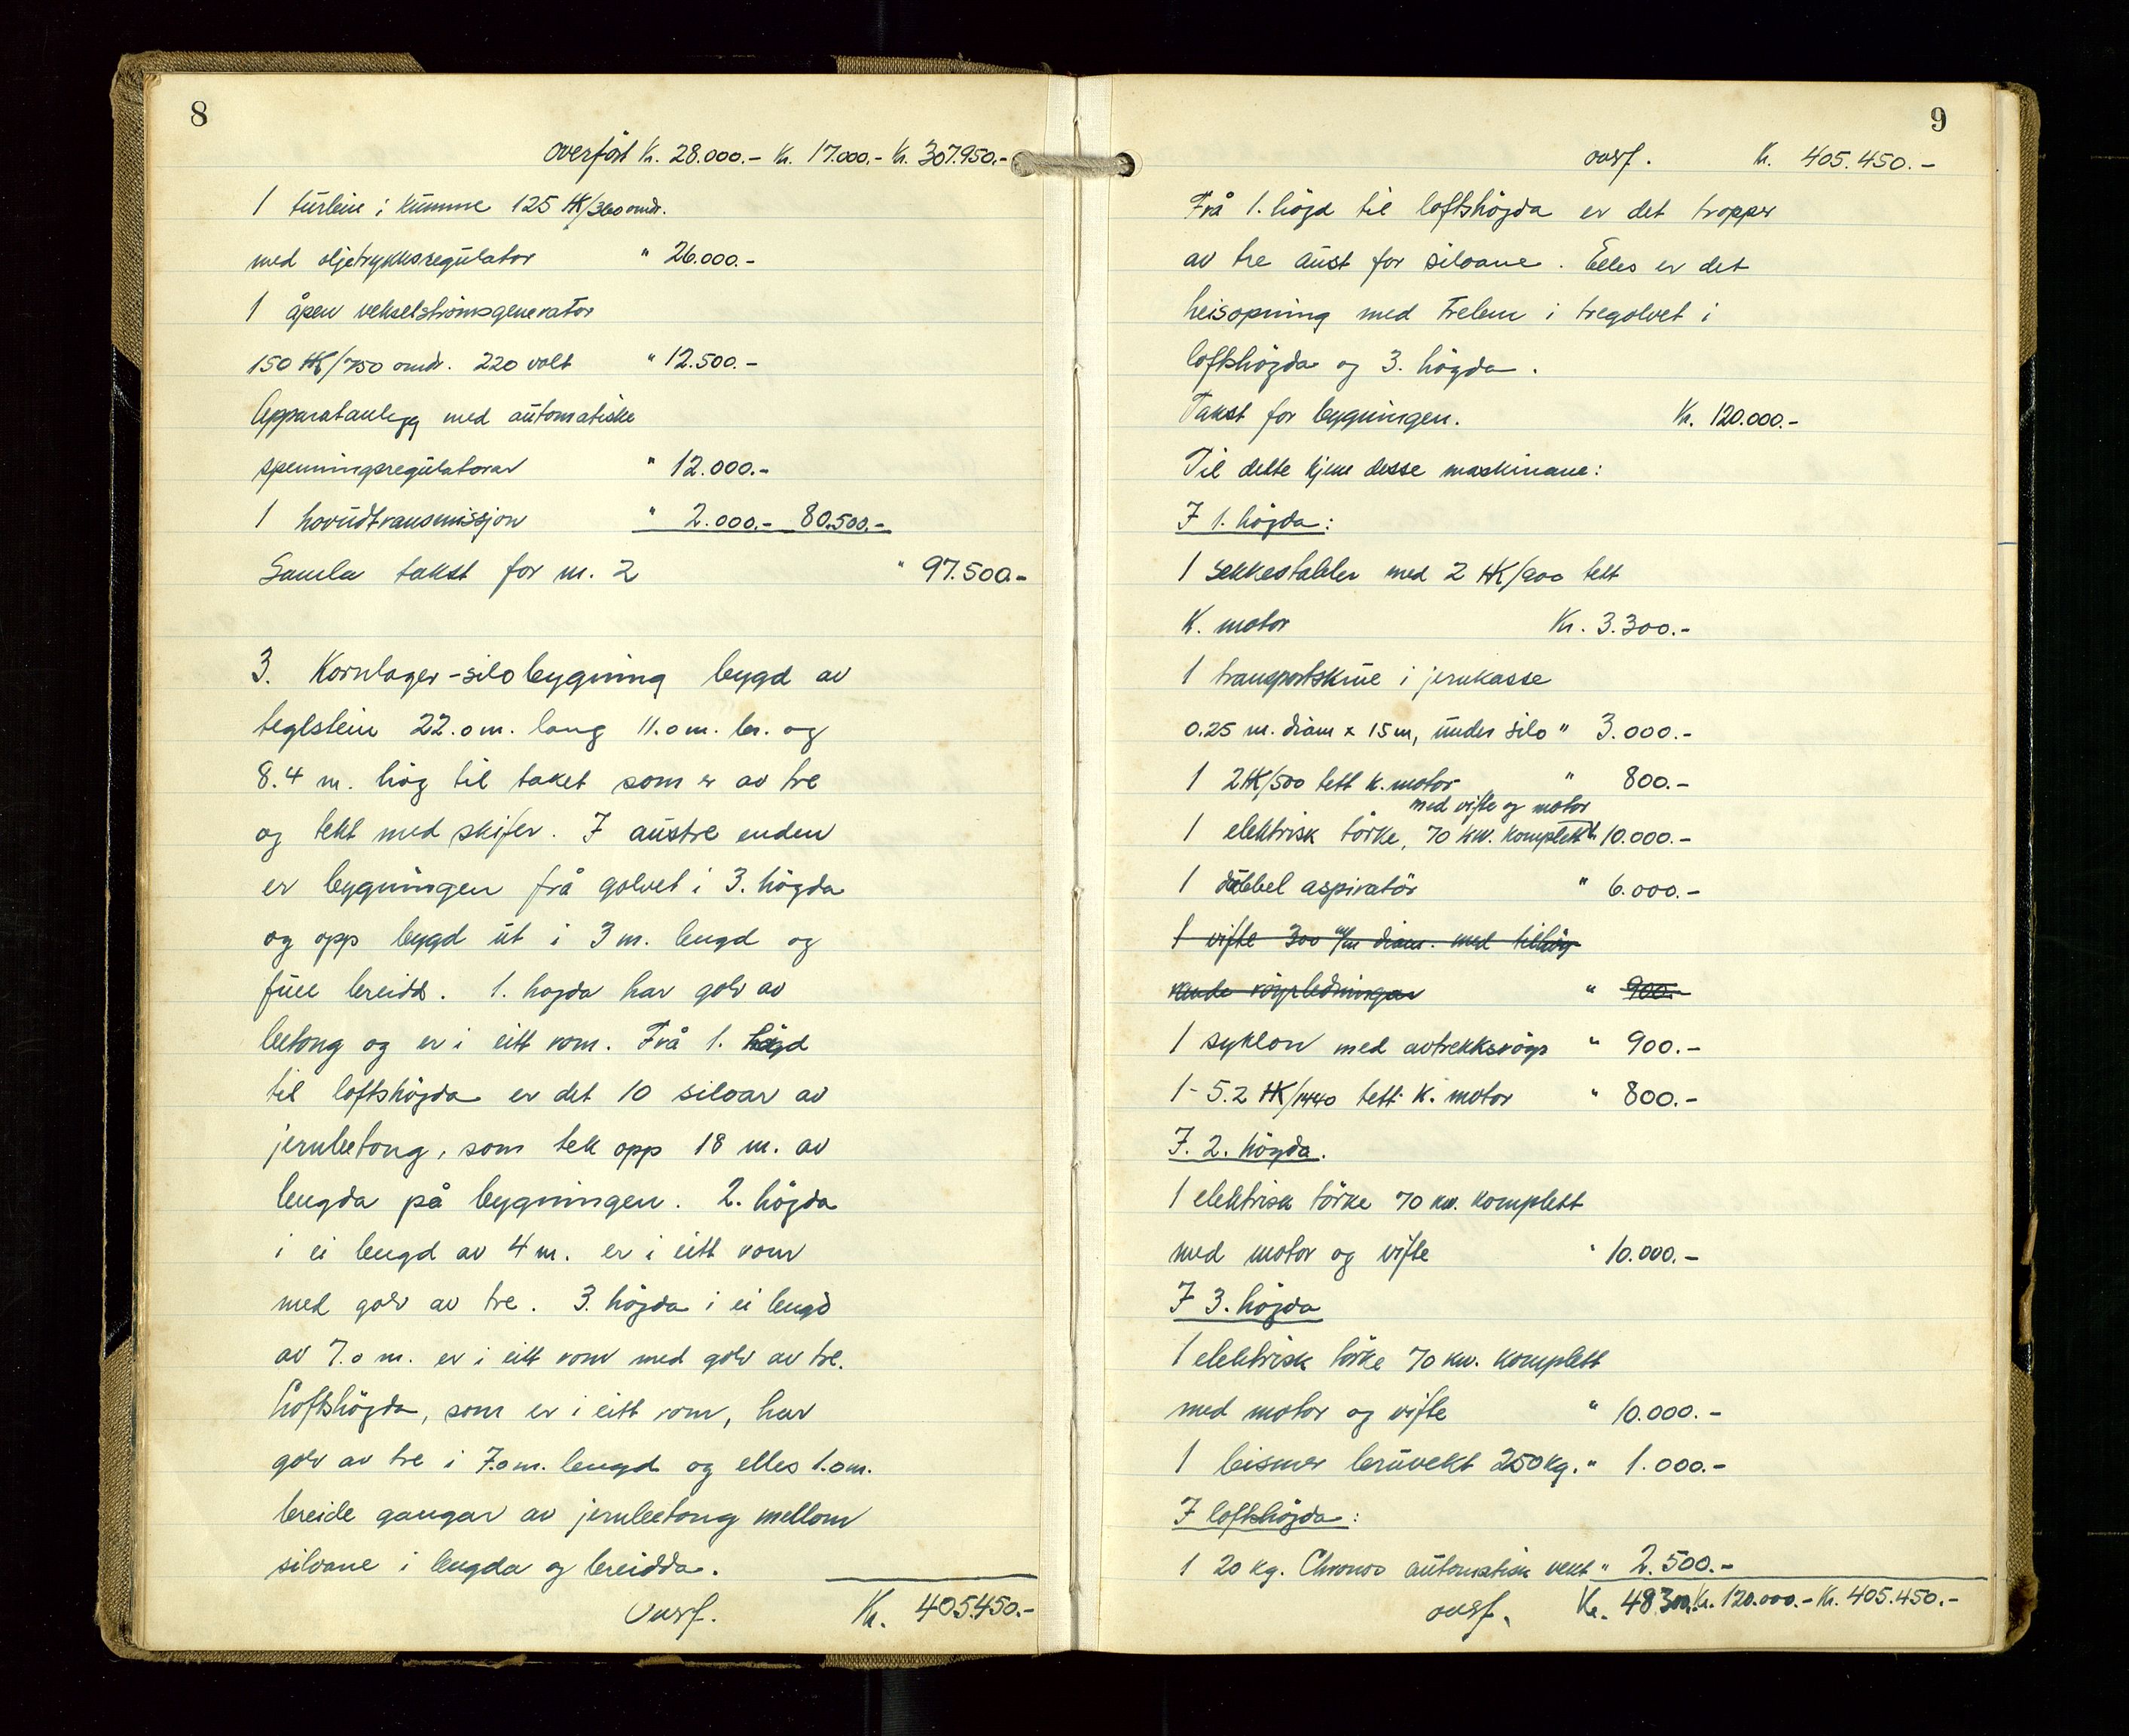 8
overført Kr. 28.000.- Kr. 17.000.- Kr. 307.950.-
1 turbin i kumme 125 HK/360 omdr.
med oljetrykksregulator " 26.000.-
1 åpen vekselstrømsgenerator
150 HK/750 omdr. 220 volt " 12.500.-
Apparatanlegg med automatiske
spenningsregulatorar " 12.000.-
1 hovudtransmissjon " 2.000.- 80.500.-
Samla takst for m. 2 " 97.500.-
3. Kornlager-silobygning bygd av
teglstein 22.0 m. lang 11.0 m. br. og
8.4 m. høg til taket som er av tre
og tekt med skifer. I austre enden
er bygningen frå golvet i 3. høgda
og opp bygd ut i 3 m. lengd og
full breidd. 1. høgda har golv av
betong og er i eitt rom. Frå 1. høgd
til loftshøgda er det 10 siloar av
jernbetong, som tek opp 18 m. av
lengda på bygningen. 2. høgda
i ei lengd av 4 m. er i eitt rom
med golv av tre. 3. høgda i ei lengd
av 7.0 m. er i eitt rom med golv av tre.
Loftshøgda, som er i eitt rom, har
golv av tre i 7.0 m. lengd og elles 1.0 m.
breide gangar av jernbetong mellom
siloane i lengda og breidda.
Overf. Kr. 405.450.-
9
overf. Kr. 405.450.-
Frå 1. høgd til loftshøgda er det tropper
av tre aust for siloane. Elles er det
heisopning med trelem i tregolvet i
loftshøgda og 3. høgda.
Takst for bygningen. Kr. 120.000.-
Til dette kjem desse maskinane:
I 1. høgda:
1 sekkestabler med 2 HK/900 tett
K. motor Kr. 3.300.-
1 transportskrue i jernkasse
0.25 m. diam x 15 m, under silo " 3.000.-
1 2 HK/500 tett k. motor " 800.-
med vifte og motor
1 elektrisk tørke, 70 kw. komplett " 10.000.-
1 dobbel aspiratør " 6.000.-
1 vifte 300 m/m diam. med tilhøy-
rande røyrledningar " 900.-
1 syklon med avtrekksrøyr " 900.-
1- 5.2 HK/1440 tett k. motor " 800.-
I. 2. høgda.
1 elektrisk tørke 70 kw. komplett
med motor og vifte " 10.000.-
I 3. høgda
1 elektrisk tørke 70 kw. komplett
med motor og vifte " 10.000.-
1 bismer bruvekt 250 kg. " 1.000.-
I loftshøgda:
1 20 kg. Chronos automatisk vekt " 2.500.-
overf. Kr. 48.300.- Kr. 120.000.- Kr. 405.450.-